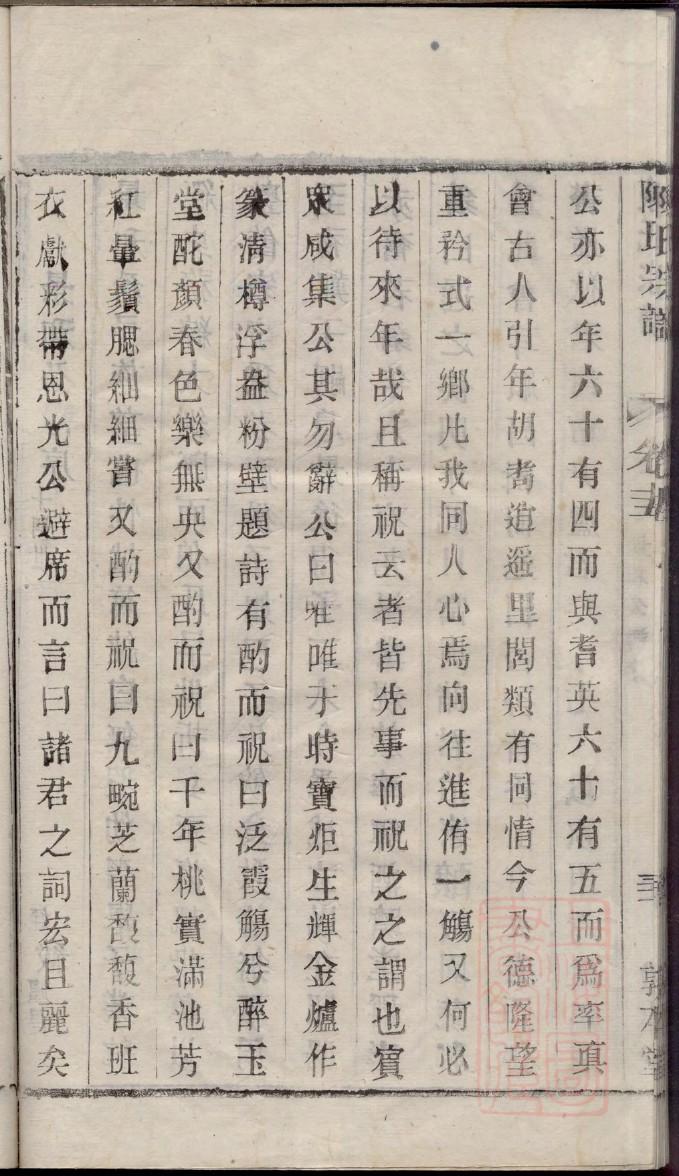 陳氏宗譜
卷五
敦本堂
公亦以年六十有四而與耆英六十有五而爲率真
會古人引年胡耈逍遥里閭類有同情今公德隆望
重矜式一鄉凡我同人心焉向往進侑一觴又何必
以待來年哉且稱祝云者皆先事而祝之之謂也賓
衆咸集公其勿辭公曰唯唯于時寶炬生輝金爐作
篆清樽浮盎粉壁題詩有酌而祝曰泛霞觴兮醉玉
堂酡顏春色樂無央又酌而祝曰千年桃實滿池芳
紅暈鬚腮細細嘗又酌而祝曰九畹芝蘭馥馥香班
衣獻彩帶恩光公避席而言曰諸君之詞宏且麗矣